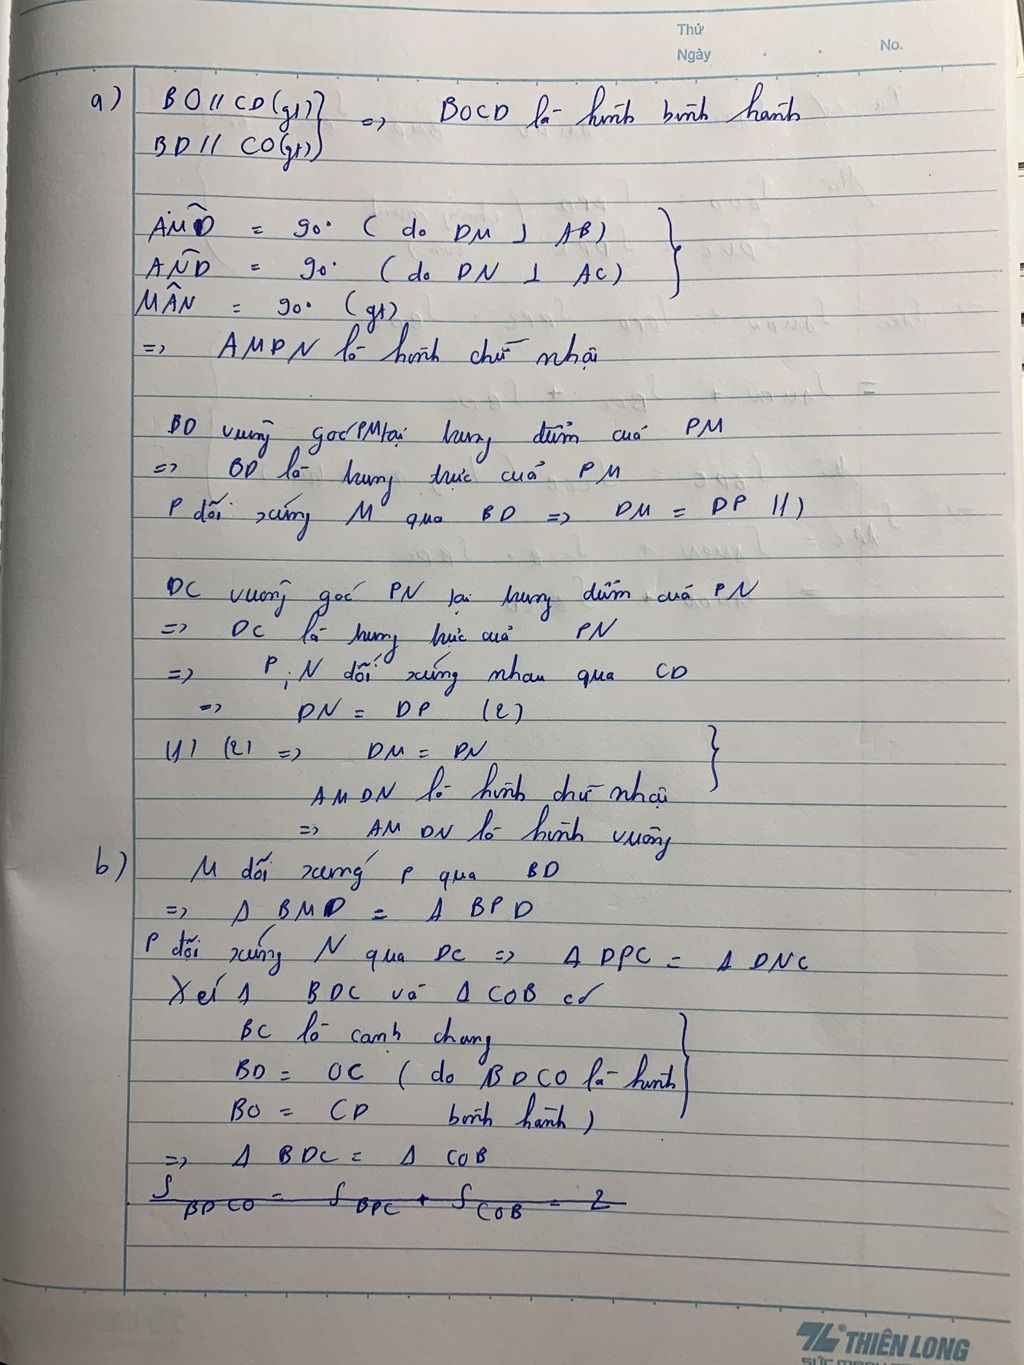 Thứ
Ngày . . No.
a) BO // CD (gt)
BD // CO (gt) } => BOCD là hình bình hành
AMD̂ = 90° ( do DM ⊥ AB)
AND̂ = 90° ( do DN ⊥ AC) }
MÂN = 90° (gt)
=> AMDN là hình chữ nhật
BD vuông góc PM tại trung điểm của PM
=> BD là trung trực của PM
P đối xứng M qua BD => DM = DP (1)
DC vuông góc PN tại trung điểm của PN
=> DC là trung trực của PN
=> P, N đối xứng nhau qua CD
=> DN = DP (2)
(1) (2) => DM = DN
AMDN là hình chữ nhật }
=> AMDN là hình vuông
b) M đối xứng P qua BD
=> Δ BMD = Δ BPD
P đối xứng N qua DC => Δ DPC = Δ DNC
Xét Δ BDC và Δ COB có
BC là cạnh chung
BD = OC ( do BDCO là hình
BO = CD bình hành ) }
=> Δ BDC = Δ COB
S BDCO = S BPC + S COB = 2
THIÊN LONG